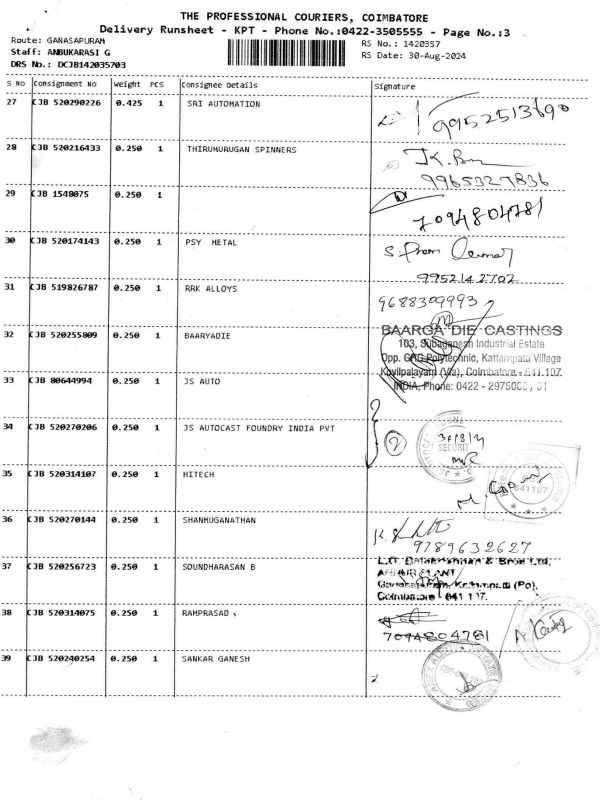 THE PROFESSIONAL COURIERS, COIMBATORE
Delivery Runsheet - KPT - Phone No.:0422-3505555 - Page No.:3
Route: GANASAPURAM
RS No.: 1420357
Staff: ANBUKARASI G
RS Date: 30-Aug-2024
DRS No.: DCJB142035703
S No Consignment No Weight PCS Consignee Details Signature
27 CJB 520290226 0.425 1 SRI AUTOMATION
9952513690
28 CJB 520216433 0.250 1 THIRUMURUGAN SPINNERS
9965327836
29 CJB 1548075 0.250 1
7094804781
30 CJB 520174143 0.250 1 PSY METAL
9952142702
31 CJB 519826787 0.250 1 RRK ALLOYS
9688309993
32 CJB 520255809 0.250 1 BAARYADIE
BAARGA DIE CASTINGS
103, Subaganesh Industrial Estate
Opp. Polytechnic, Kattampatti Village
Kovilpalayam (Via), Coimbatore - 641 107.
INDIA, Phone: 0422 -
33 CJB 80644994 0.250 1 JS AUTO
34 CJB 520270206 0.250 1 JS AUTOCAST FOUNDRY INDIA PVT
2
SECURIT
35 CJB 520314107 0.250 1 HITECH
641107
36 CJB 520270144 0.250 1 SHANMUGANATHAN
9789632627
37 CJB 520256723 0.250 1 SOUNDHARASAN B
L.G. Balakrishnan & Bros Ltd,
Coimbatore 641 107.
38 CJB 520314075 0.250 1 RAMPRASAD
7094804781
39 CJB 520240254 0.250 1 SANKAR GANESH